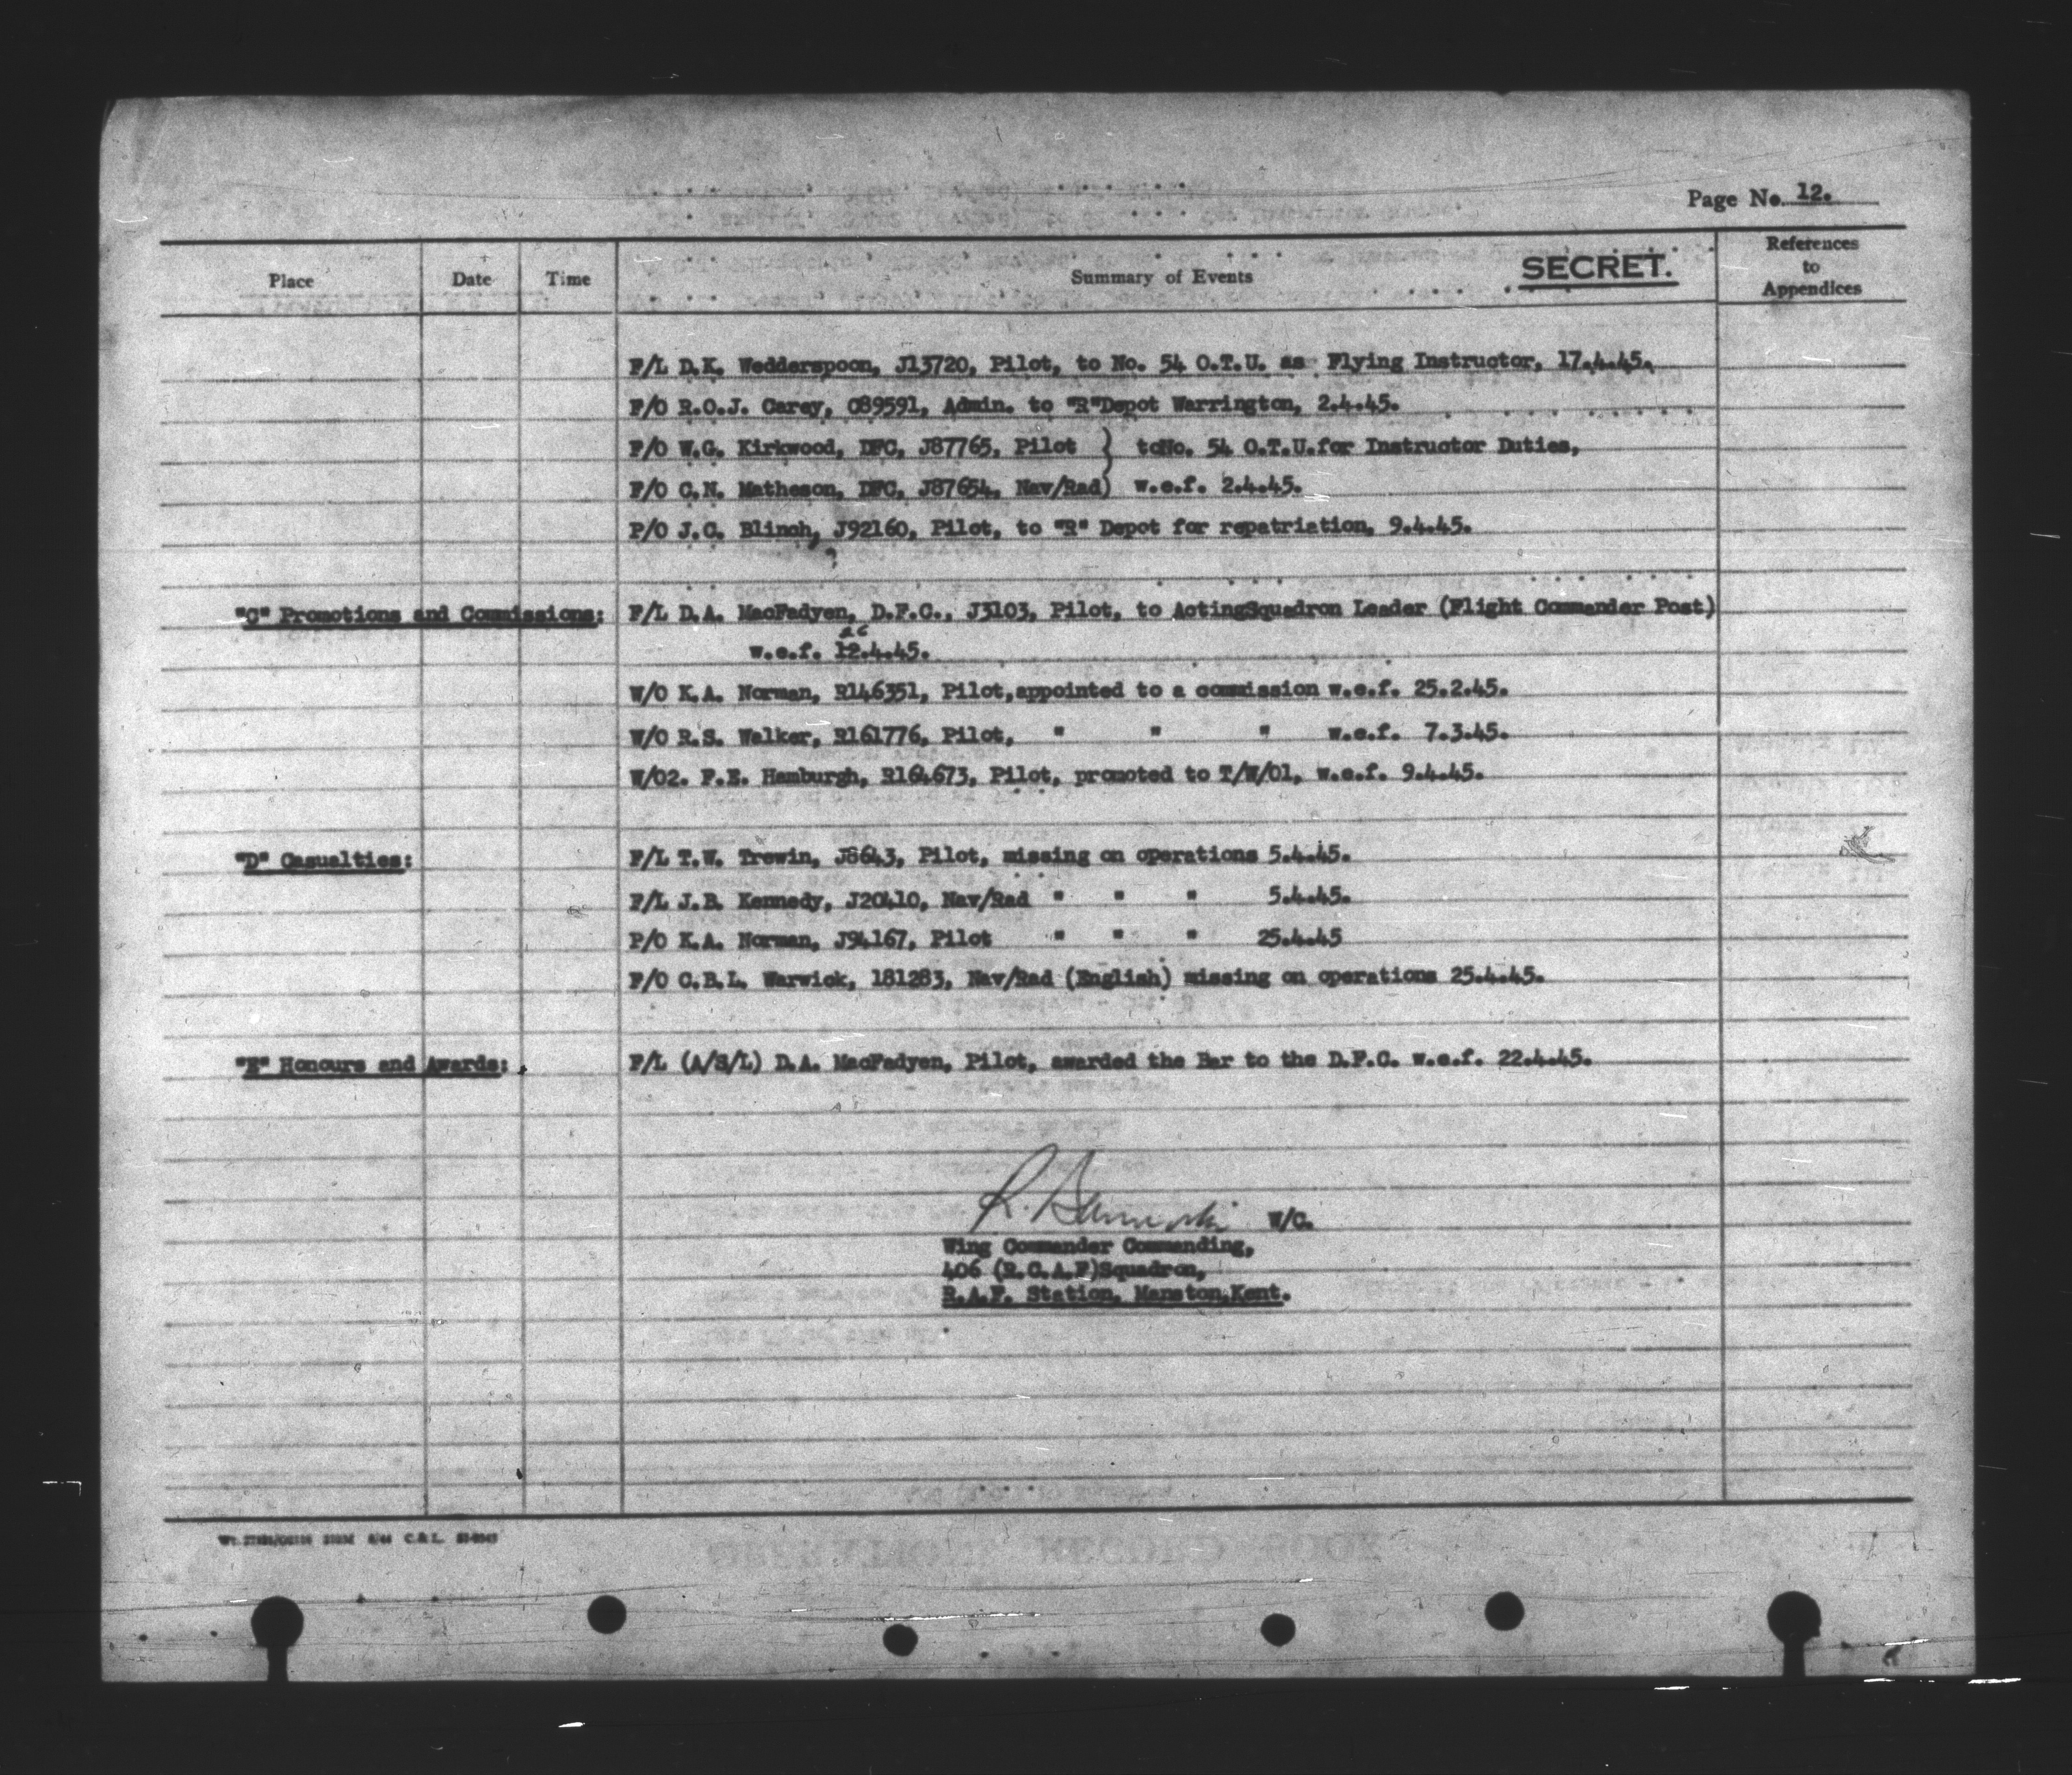 Page No. 12.
Place Date Time Summary of Events SECRET. References to Appendices
F/L D.K. Wedderspoon, J13720, Pilot, to No. 54 O.T.U. as Flying Instructor, 17.4.45.
F/O R.O.J. Carey, C89591, Admin. to "R"Depot Warrington, 2.4.45.
F/O W.G. Kirkwood, DFC, J87765, Pilot } toNo. 54 O.T.U.for Instructor Duties,
F/O C.N. Matheson, DFC, J87654, Nav/Rad) w.e.f. 2.4.45.
P/O J.C. Blinch, J92160, Pilot, to "R" Depot for repatriation, 9.4.45.
?
"C" Promotions and Commissions: F/L D.A. MacFadyen, D.F.C., J3103, Pilot, to ActingSquadron Leader (Flight Commander Post)
w.e.f. 12.4.45.
W/O K.A. Norman, R146351, Pilot,appointed to a commission w.e.f. 25.2.45.
W/O R.S. Walker, R161776, Pilot, " " " w.e.f. 7.3.45.
W/O2. F.E. Hamburgh, R164673, Pilot, promoted to T/W/O1, w.e.f. 9.4.45.
"D" Casualties: F/L T.W. Trewin, J8643, Pilot, missing on operations 5.4.45.
F/L J.B. Kennedy, J20410, Nav/Rad " " " 5.4.45.
P/O K.A. Norman, J94167, Pilot " " " 25.4.45
F/O C.B.L. Warwick, 181283, Nav/Rad (English) missing on operations 25.4.45.
"E" Honours and Awards: F/L (A/S/L) D.A. MacFadyen, Pilot, awarded the Bar to the D.F.C. w.e.f. 22.4.45.
R. W/C.
Wing Commander Commanding,
406 (R.C.A.F)Squadron,
R.A.F. Station, Manston,Kent.
C.& L.